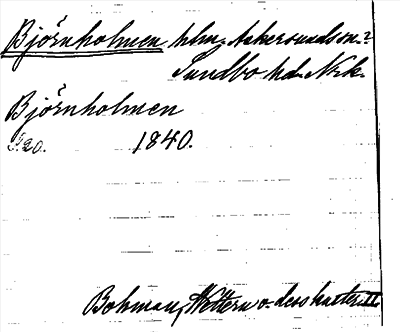 Björnholmen hlm. Askersunds sn.?
Sundbo hd. Nrk.
Björnholmen
I:20. 1840.
Bohman, Wettern o. dess kuster II